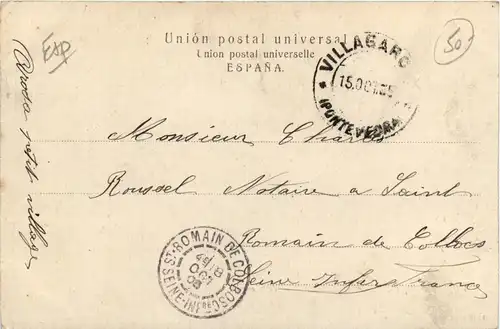 ESP
50
Unión postal universal
Union postal universelle
ESPAÑA.
VILLAGARC
15.OCT.05
(PONTEVEDRA
Monsieur Charles
Roussel Notaire à Saint
Romain de Colbosc
Seine Infre France
ST-ROMAIN DE COLBOSC
SEINE-INFRE
Arosa petit village